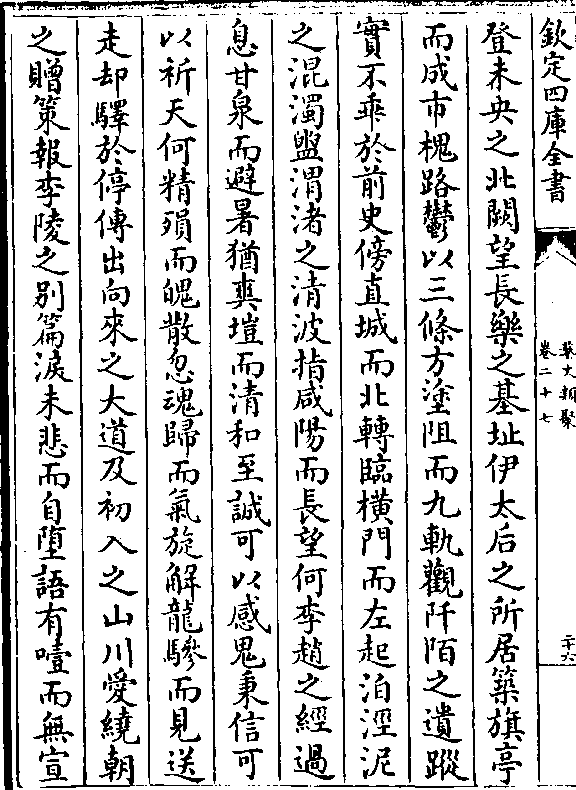 欽定四庫全書
藝文類聚
卷二十七
二十六
登未央之北闕望長樂之基址伊太后之所居築旗亭
而成市槐路鬱以三條方塗阻而九軌觀阡陌之遺蹤
實不乖於前史傍直城而北轉臨橫門而左起泊涇泥
之混濁盥渭渚之清波指咸陽而長望何李趙之經過
息甘泉而避暑猶爽塏而清和至誠可以感鬼秉信可
以祈天何精殞而魄散忽魂歸而氣旋解龍驂而見送
走却驛於停傳出向來之大道及初入之山川愛繞朝
之贈策報李陵之別篇淚未悲而自墮語有噎而無宣